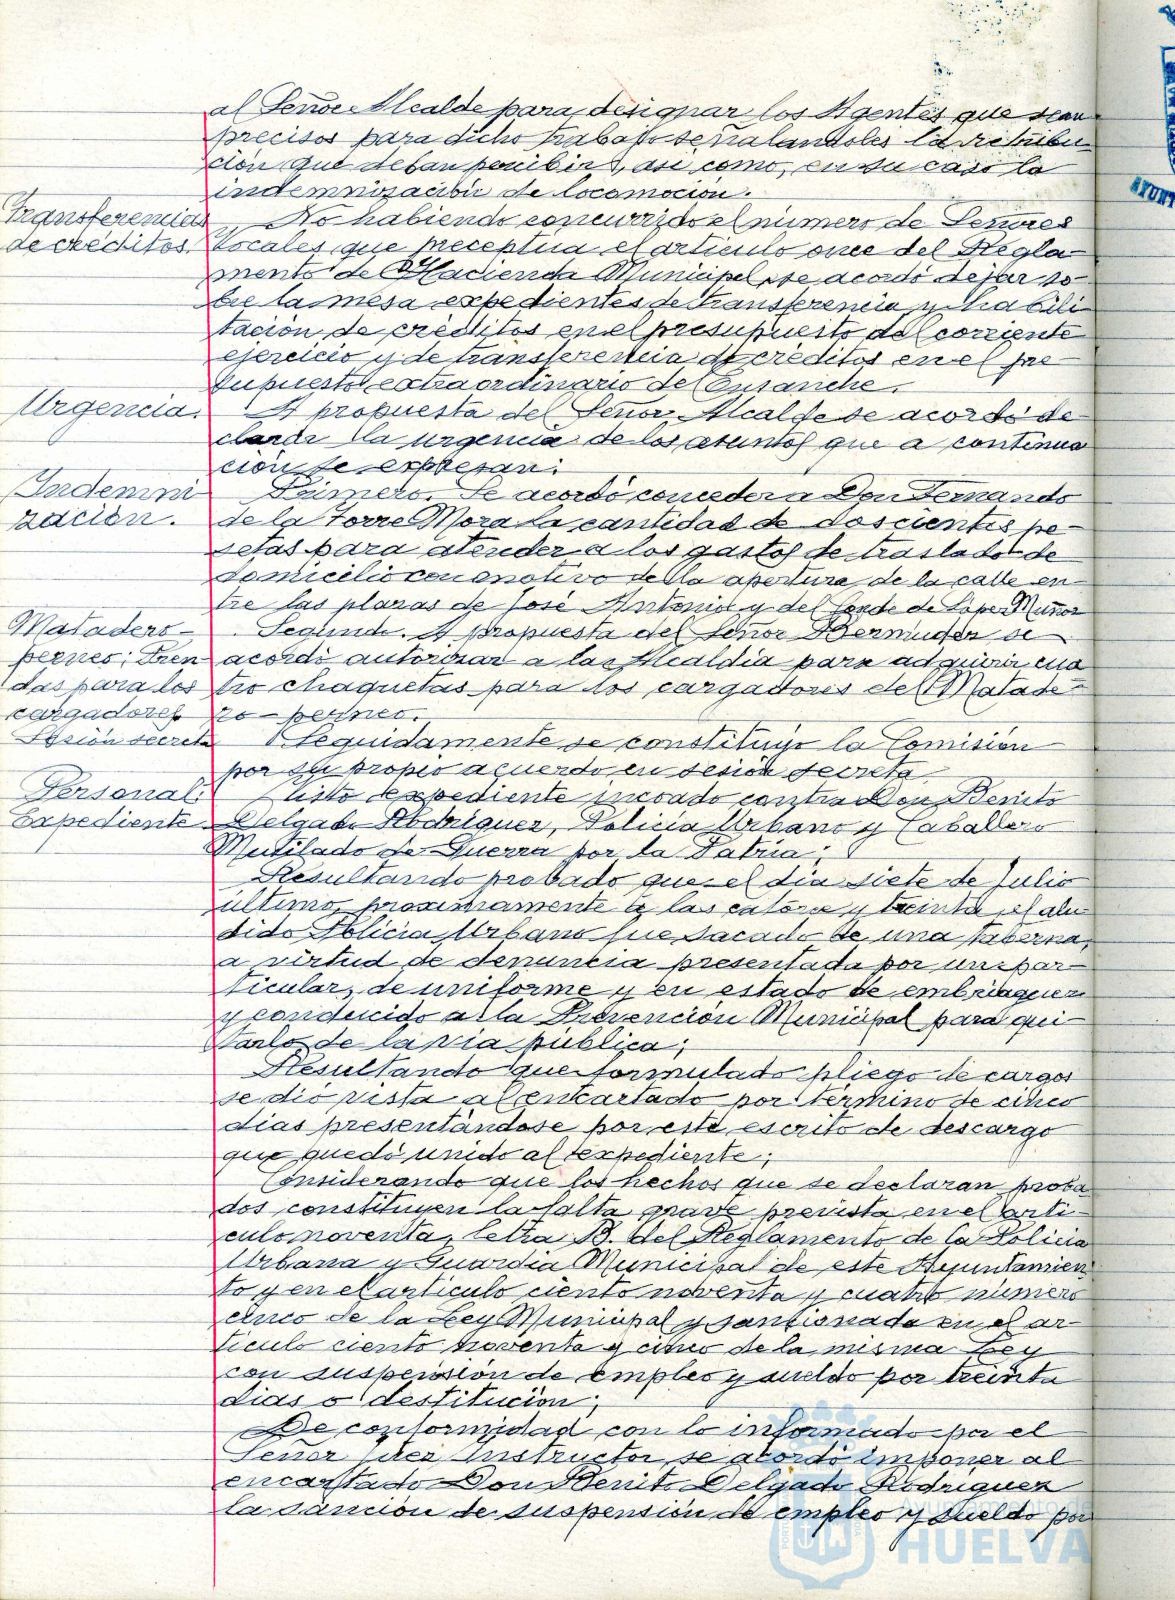 al Señor Alcalde para designar los Agentes que sean
precisos para dicho trabajo señalandoles la retribu-
ción que deban percibir, así como, en su caso la
indemnización de locomoción.
Transferencias
de créditos.
No habiendo concurrido el número de Señores
Vocales que preceptúa el artículo once del Regla-
mento de Hacienda Municipal, se acordó dejar so-
bre la mesa expedientes de transferencia y habili-
tación de créditos en el presupuesto del corriente
ejercicio y de transferencia de créditos en el pre-
supuesto extraordinario de Ensanche.
Urgencia.
A propuesta del Señor Alcalde se acordó de-
clarar la urgencia de los asuntos que a continua-
ción se expresan:
Indemni-
zación.
Primero. Se acordó conceder a Don Fernando
de la Torre Mora la cantidad de doscientas pe-
setas para atender a los gastos de traslado de
domicilio con motivo de la apertura de la calle en-
tre las plazas de José Antonio y del Conde de López Muñoz
Matadero-
perneo; Pren-
das para los
cargadores
Segundo. A propuesta del Señor Bermúdez se
acordó autorizar a la Alcaldía para adquirir cua-
tro chaquetas para los cargadores del Matade-
ro-perneo.
Sesión secreta
Seguidamente se constituyó la Comisión
por su propio acuerdo en sesión secreta.
Personal:
Expediente
Visto expediente incoado contra Don Benito
Delgado Rodríguez, Policía Urbano y Caballero
Mutilado de Guerra por la Patria;
Resultando probado que el día siete de Julio
último, proximamente a las catorce y treinta, el alu-
dido Policía Urbano fue sacado de una taberna,
a virtud de denuncia presentada por un par-
ticular, de uniforme y en estado de embriaguez
y conducido a la Prevención Municipal para qui-
tarlo de la vía pública;
Resultando que formulado pliego de cargos
se dió vista al encartado por término de cinco
días presentándose por este escrito de descargo
que quedó unido al expediente;
Considerando que los hechos que se declaran proba-
dos constituyen la falta grave prevista en el artí-
culo noventa, letra B. del Reglamento de la Policía
Urbana y Guardia Municipal de este Ayuntamien-
to y en el artículo ciento noventa y cuatro número
cinco de la Ley Municipal y sancionada en el ar-
tículo ciento noventa y cinco de la misma Ley
con suspensión de empleo y sueldo por treinta
días o destitución;
De conformidad con lo informado por el
Señor Juez Instructor, se acordó imponer al
encartado Don Benito Delgado Rodríguez
la sanción de suspensión de empleo y sueldo por
Ayuntamiento de
HUELVA